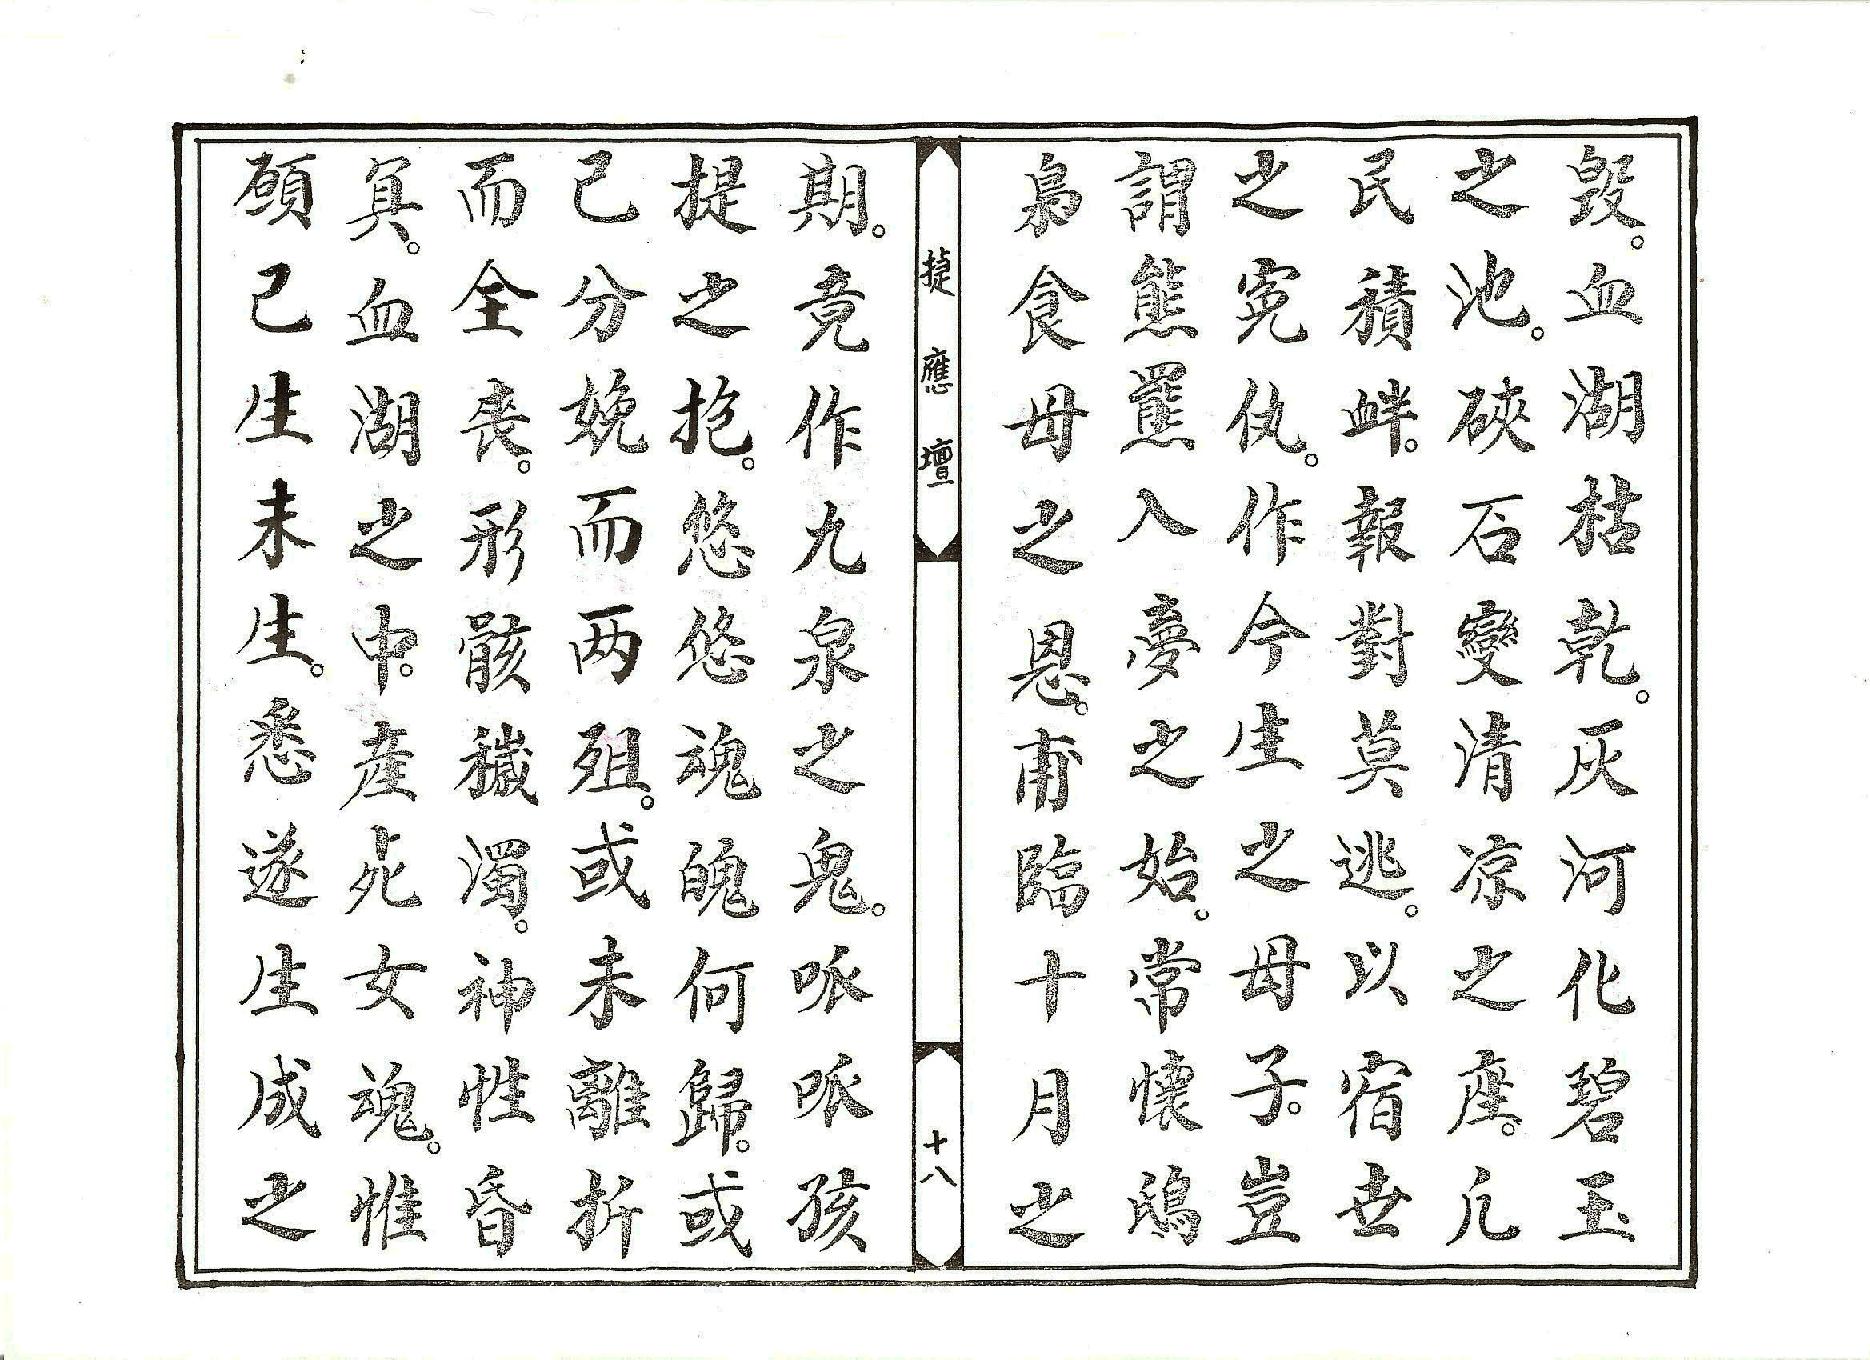 毀。血湖枯乾。灰河化碧玉
之池。硤石變清凉之座。凡
民積衅。報對莫逃。以宿世
之寃仇。作今生之母子。豈
謂熊羆入夢之始。常懷鴟
梟食母之恩。甫臨十月之
捷應壇
十八
期。竟作九泉之鬼。呱呱孩
提之抱。悠悠魂魄何歸。或
己分娩而两殂。或未離折
而全喪。形骸穢濁。神性昏
冥。血湖之中。產死女魂。惟
願己生未生。悉遂生成之